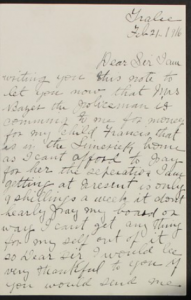 Tralee
Feb 21. 1916
Dear Sir I am
writing you this note to
let you now that Mrs
the Policeman is
comming to me for money
for my child Frances that
is in the Limerick home
as I cant afford to Pay
for her the seperation I am
getting at Present is only
9 shillings a week at dont
dearly Pay my board or
way I cant get any thing
for my self out of it
so Dear Sir I would be
very thankful to you if
you would send me